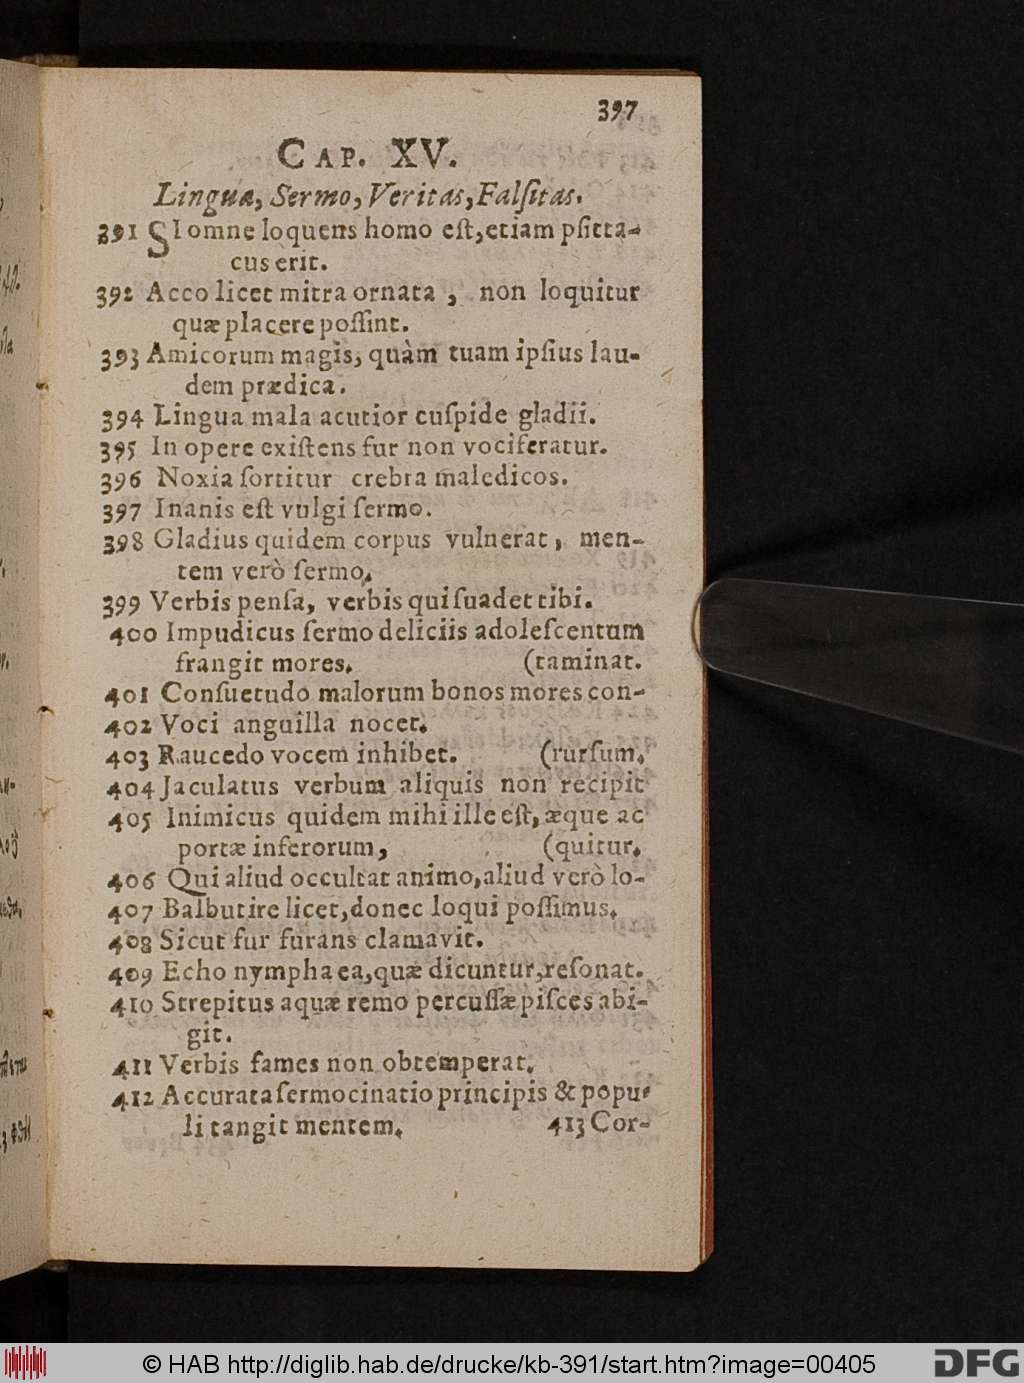 397
CAP. XV.
Lingua, Sermo, Veritas, Falſitas.
391 SI omne loquens homo eſt, etiam pſitta-
cus erit.
392 Acco licet mitra ornata , non loquitur
quæ placere poſſint.
393 Amicorum magis, quàm tuam ipſius lau-
dem prædica.
394 Lingua mala acutior cuſpide gladii.
395 In opere exiſtens fur non vociferatur.
396 Noxia ſortitur crebra maledicos.
397 Inanis eſt vulgi ſermo.
398 Gladius quidem corpus vulnerat, men-
tem verò ſermo.
399 Verbis penſa, verbis qui ſuadet tibi.
400 Impudicus ſermo deliciis adoleſcentum
frangit mores. (taminat.
401 Conſuetudo malorum bonos mores con-
402 Voci anguilla nocet.
403 Raucedo vocem inhibet. (rurſum.
404 Jaculatus verbum aliquis non recipit
405 Inimicus quidem mihi ille eſt, æque ac
portæ inferorum, (quitur.
406 Qui aliud occultat animo, aliud verò lo-
407 Balbutire licet, donec loqui poſſimus.
408 Sicut fur furans clamavit.
409 Echo nympha ea, quæ dicuntur, reſonat.
410 Strepitus aquæ remo percuſſæ piſces abi-
git.
411 Verbis fames non obtemperat.
412 Accurata ſermocinatio principis & popu-
li tangit mentem. 413 Cor-
© HAB http://diglib.hab.de/drucke/kb-391/start.htm?image=00405
DFG